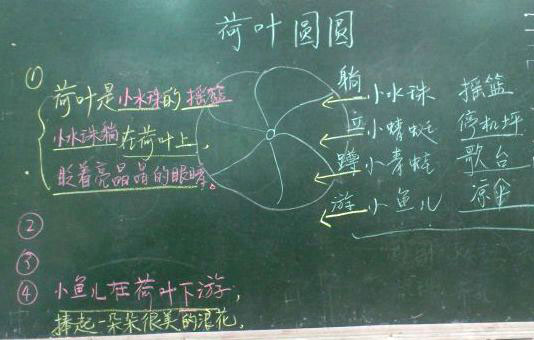 荷叶圆圆
① 荷叶是小水珠的摇篮
小水珠躺在荷叶上,
眨着亮晶晶的眼睛。
躺 小水珠 摇篮
立 小蜻蜓 停机坪
蹲 小青蛙 歌台
游 小鱼儿 凉伞
②
③
④ 小鱼儿在荷叶下游,
捧起一朵朵很美的浪花.